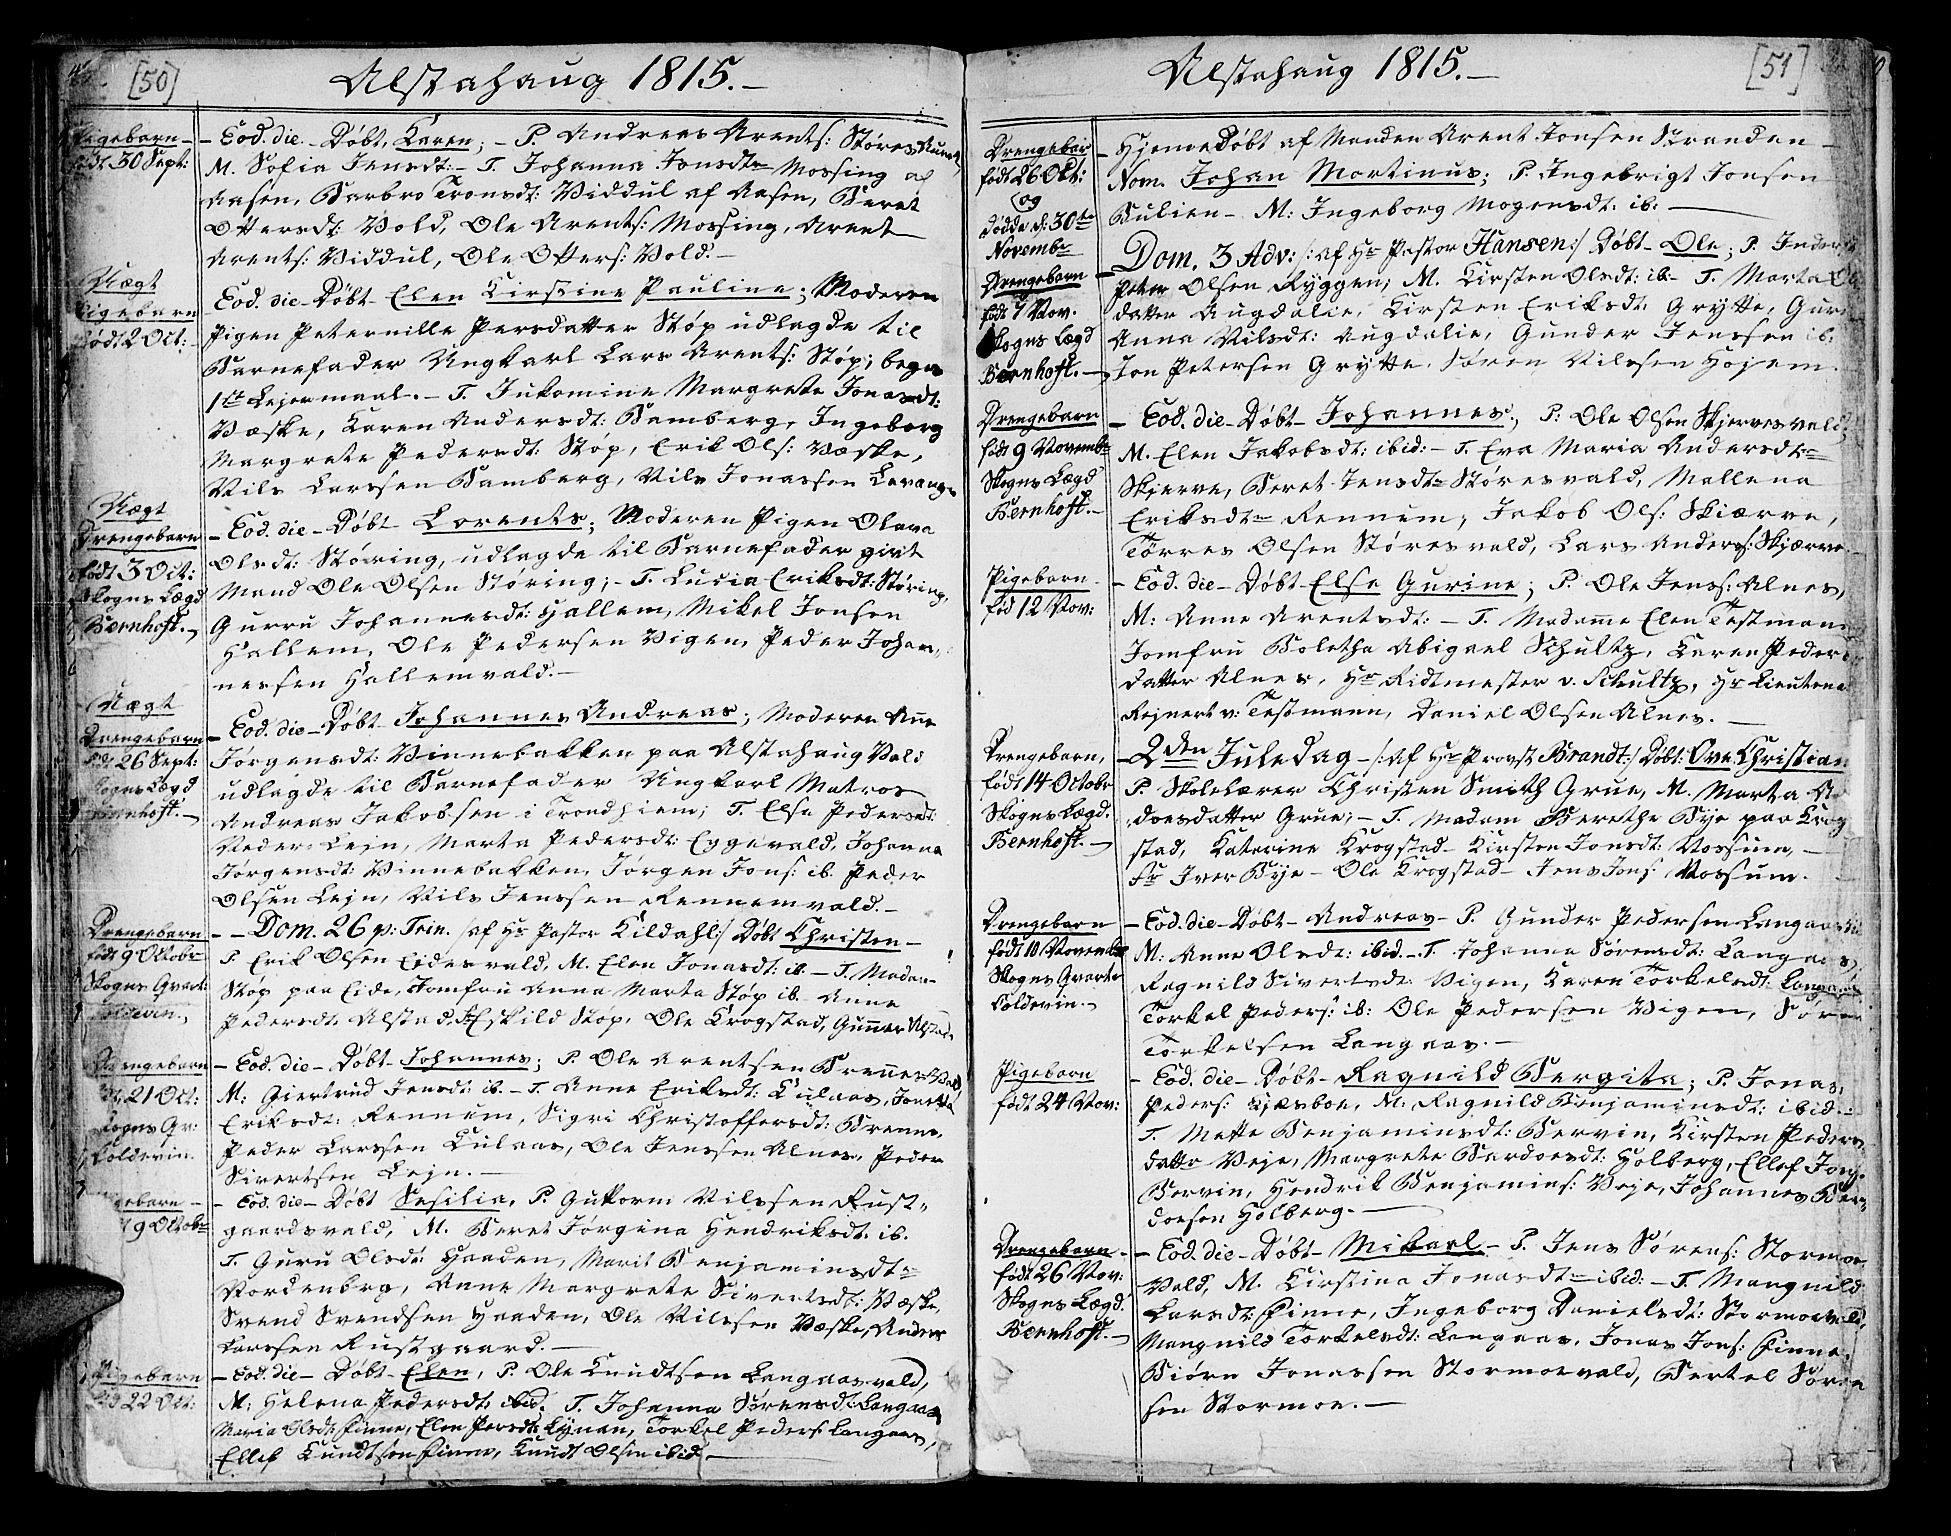 [50]
Alstahaug 1815.-
Pigebarn -
født 30 Sept:
- Eod. die - Døbt, Karen; - P. Andreas Arents: Støresvald
M. Sofia Jensdt: - T. Johanna Jonsdtr Mossing af
Aasen, Barbro Tronsdt: Viddul af Aasen, Beret
Ottersdt: Vold, Ole Arents: Mossing, Arent
Arents: Viddul, Ole Otters: Vold. -
Uægt
Pigebarn
født 2 Oct:
Eod. die - Døbt - Elen Kirstine Pauline; Moderen
Pigen Peternille Persdatter Støp udlagde til
Barnefader Ungkarl Lars Arents: Støp; begas
1te Lejermaal. - T. Jukomine Margrete Jonasdt:
Væske, Karen Andersdt: Bamberg, Ingeborg
Margrete Pedersdt: Støp, Erik Ols: Væske,
Nils Larssen Bamberg, Nils Jonassen Levanger
Uægt
Drengebarn
født 3 Oct:
Skogns Lægd
Bernhoft. -
- Eod. die - Døbt Lorents; Moderen Pigen Olava
Olsdt: Støring, udlagde til Barnefader givt
Mand Ole Olsen Støring; - T. Lucia Eriksdt: Støring,
Gurru Johannesdt: Hallem, Mikel Jonsen
Hallem, Ole Pedersen Vigen, Peder Johan,,
nessen Hallemvald. -
Uægt
Drengebarn
født 26 Sept:
Skogns Lægd
Bernhoft. -
- Eod. die - Døbt Johannes Andreas; Moderen Ane
Jørgensdt: Vinnebakken paa Alstahaug Vald
udlagde til Barnefader Ungkarl Matros
Andreas Jakobsen i Trondhiem; T. Else Pedersdt:
Neder Lejn, Marta Pedersdt: Eggevald, Johanna
Jørgensdt: Vinnebakken, Jørgen Jons: ib. Peder
Olsen Lejn, Nils Jenssen Rennemvald. -
Drengebarn
født 9 Oktobr
Skogns Qvart:
Coldevin. -
- - Dom. 26 p: Trin. /: af Hr Pastor Kildahl :/ Døbt Christen -
P. Erik Olsen Eidesvald, M. Elen Jonasdt: ib. - T. Madam
Støp paa Eide, Jomfru Anna Marta Støp ib. Anne
Pedersdt: Alstad, Eskild Støp, Ole Krogstad, Gunner Alstad.
Drengebarn
født 21 Oct:
Skogns Qv:
Coldevin.
- Eod. die - Døbt - Johannes; P. Ole Arentsen Brennes Vald
M: Giertrud Jensdt: ib. - T. Anne Eriksdt: Kulaas, Jonetta
Eriksdt: Rennem, Sigri Christoffersdt: Brenne,
Peder Larssen Kulaas, Ole Jenssen Alnes, Peder
Sivertsen Lejn. -
gebarn -
9 Oktobr
- Eod. die - Døbt Sesilia, P. Guttorm Nilssen Rust-
gaardsvald, M. Beret Jørgina Hendriksdt: ib.
T. Guru Olsdt: Haaden, Marit Benjaminsdtr
Nordenberg, Anne Margrete Sivertsdt: Væske,
Svend Svendsen Haaden, Ole Nilssen Væske, Anders
Larssen Rustgaard. -
Pigebarn
født 22 Oct:
- Eod. die - Døbt - Elen, P. Ole Knudtsen Langaasvald,
M: Helena Pedersdt: ibid. T. Johanna Sørensdt: Langaas
Maria Olsdt: Finne, Elen Persdt: Lynan, Torkel Peders: Langaas,
Ellef Knudtsøn Finne, Knudt Olsen ibid. -
[51]
Alstahaug 1815. -
Drengebar
født 26 Okt:
og
Dødde d: 30te
Novembr
- Hjemedøbt af Manden Arent Jonsen Stranden -
Nom. Johan Mortinus; P. Ingebrigt Jonsen
Bulien - M: Ingeborg Mogensdt: ib. -
Drengebarn
født 7 Nov.
Skogns Lægd
Bernhoft. -
- Dom. 3 Adv: /: af Hr Pastor Hansen :/ Døbt - Ole; P. Inderst
Peter Olsen Ryggen; M. Kirsten Olsdt: ib. - T. Marta Ols
datter Augdalie, Kirsten Eriksdt: Grytte, Guru
Anna Nilsdt: Augdalie, Gunder Jenssen ib.
Jon Petersen Grytte, Søren Nilssen Hojem.
Drengebarn
født 9 Novembr
Skogns Lægd
Bernhoft. -
- Eod. die - Døbt - Johannes; P: Ole Olsen Skjervesvald,
M. Elen Jakobsdt: ibid: - T. Eva Maria Andersdtr
Skjerve, Beret Jensdtr Støresvald, Mallena
Eriksdtr Rennem, Jakob Ols: Skiærve,
Tørres Olsen Støresvald, Lars Anders: Skjærve.
Pigebarn
fød 12 Nov:
- Eod. die - Døbt - Else Gurine; P. Ole Jenss: Alnes,
M: Anne Arentsdt: - T. Madame Elen Testmann
Jomfru Boletha Abigael Schultz, Karen Peders
datter Alnes, Hr Ridtmester v. Schultz, Hr Lieutena
Rejnert v: Testmann, Daniel Olsen Alnes. -
Drengebarn,
født 14 Octobr
Skogns Lægd.
Bernhoft. -
- 2den Juledag - /: af Hr Provst Brandt :/ Døbt: Ove Christian
P. Skolelærer Christen Smith Grue, M. Marta
doesdatter Grue; - T. Madam Berethe Bye paa Krog
stad, Katerine Krogstad - Kirsten Jonsdt: Vossum, -
Sr Iver Bye - Ole Krogstad - Jens Jons: Vossum.
Drengebarn
født 10 Novembr
Skogns Qvarter
Coldevin. -
- Eod. die - Døbt - Andreas - P. Gunder Pedersen Langaas
M: Anne Olsdt: ibid. - T. Johanna Sørensdt: Langaas,
Ragnild Sivertsdt: Vigen, Karen Torkelsdt: Langaas
Torkel Peders: ib: Ole Pedersen Vigen, Søren
Torkelsen Langaas. -
Pigebarn
født 24 Nov:
- Eod. die - Døbt - Ragnild Bergita; P. Jonas,
Peders: Kjesboe, M: Ragnild Benjaminsdt: ibid. -
T. Mette Benjaminsdt: Bervin, Kirsten Peders
datter Veje, Margrete Bardoesdt: Holberg, Ellef Jons:
Bervin, Hendrik Benjamins: Veje, Johannes Bar-
doesen Holberg. -
Drengebarn -
født 26 Nov:
Skogns Lægd.
Bernhoft. -
- Eod. die - Døbt - Mikael - P. Jens Sørens: Stormoe
Vald, M. Kirstina Jonasdtr ibid: - T. Mangnild
Larsdt: Finne, Ingeborg Danielsdt: Stormoevald,
Mangnild Torkelsdt: Langaas, Jonas Jons: Finne,
Biørn Jonassen Stormoevald, Bertel Søren
sen Stormoe. -